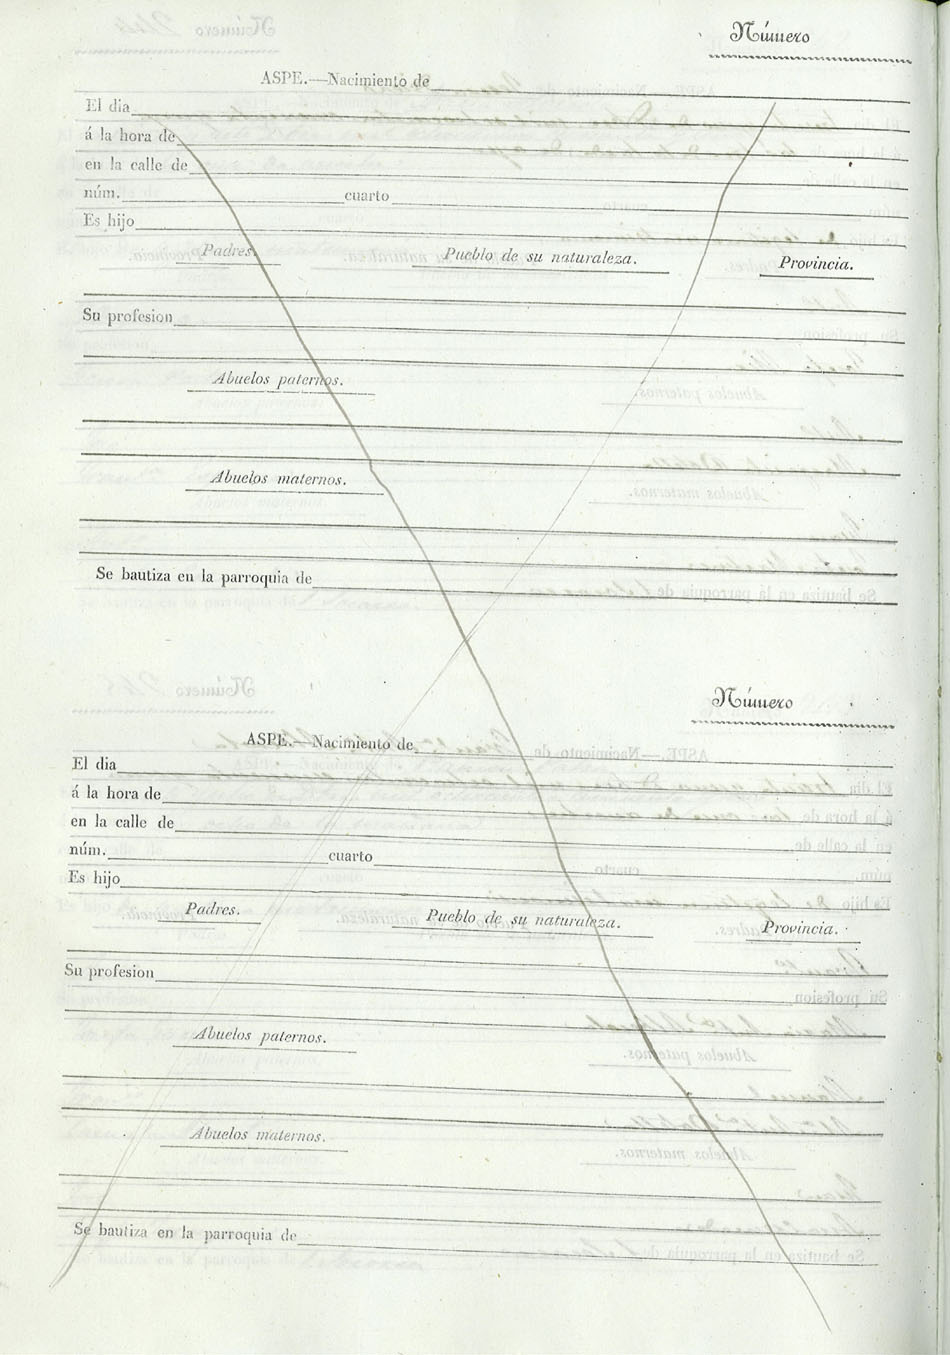 Número
ASPE.—Nacimiento de
El dia
á la hora de
en la calle de
núm. cuarto
Es hijo
Padres. Pueblo de su naturaleza. Provincia.
Su profesion
Abuelos paternos.
Abuelos maternos.
Se bautiza en la parroquia de
Número
ASPE.—Nacimiento de
El dia
á la hora de
en la calle de
núm. cuarto
Es hijo
Padres. Pueblo de su naturaleza. Provincia.
Su profesion
Abuelos paternos.
Abuelos maternos.
Se bautiza en la parroquia de